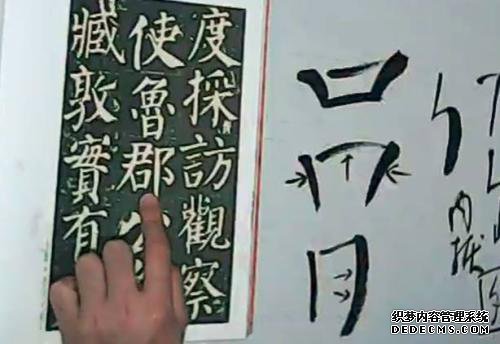 度採訪觀察
使魯郡
臧敦實有
内
织梦内容管理系统
DEDECMS.COM